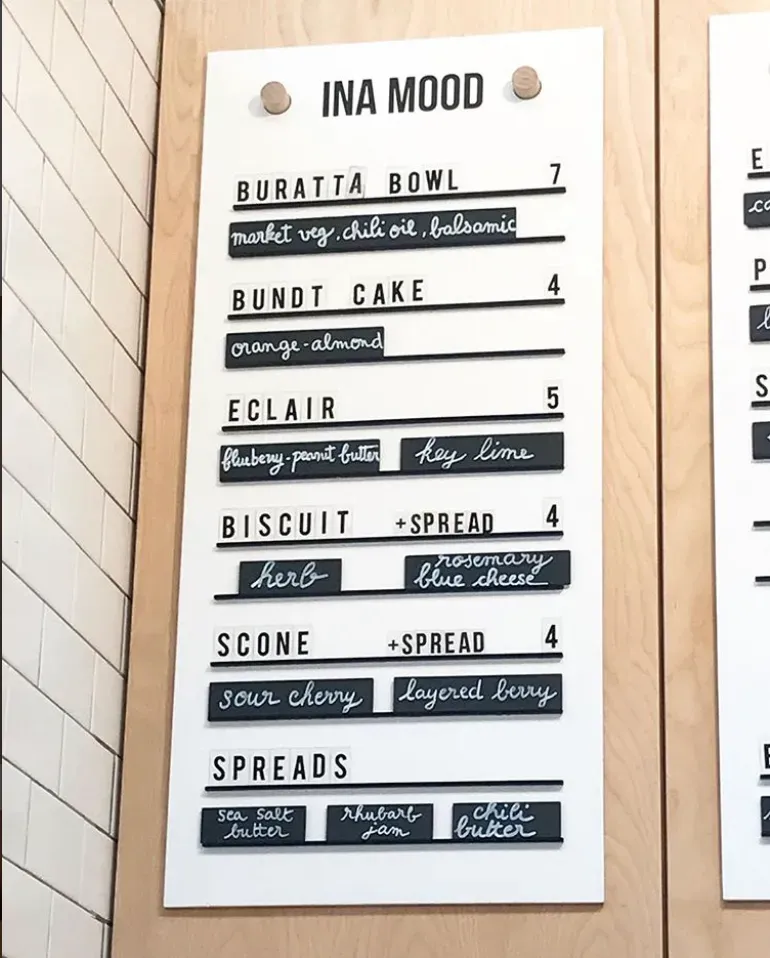 INA MOOD
BURATTA BOWL 7
market veg, chili oil, balsamic
BUNDT CAKE 4
orange-almond
ECLAIR 5
blueberry-peanut butter key lime
BISCUIT +SPREAD 4
herb rosemary
blue cheese
SCONE +SPREAD 4
sour cherry layered berry
SPREADS
sea salt rhubarb chili
butter jam butter
E
P
S